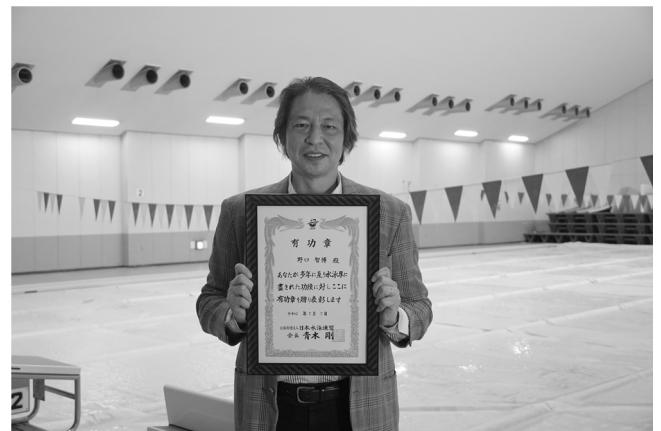 有功章
野口 智博 殿
あなたが多年に亘り水泳界に
尽された功績に対しここに
有功章を贈り表彰します
公益財団法人日本水泳連盟
会長 青木 剛
2